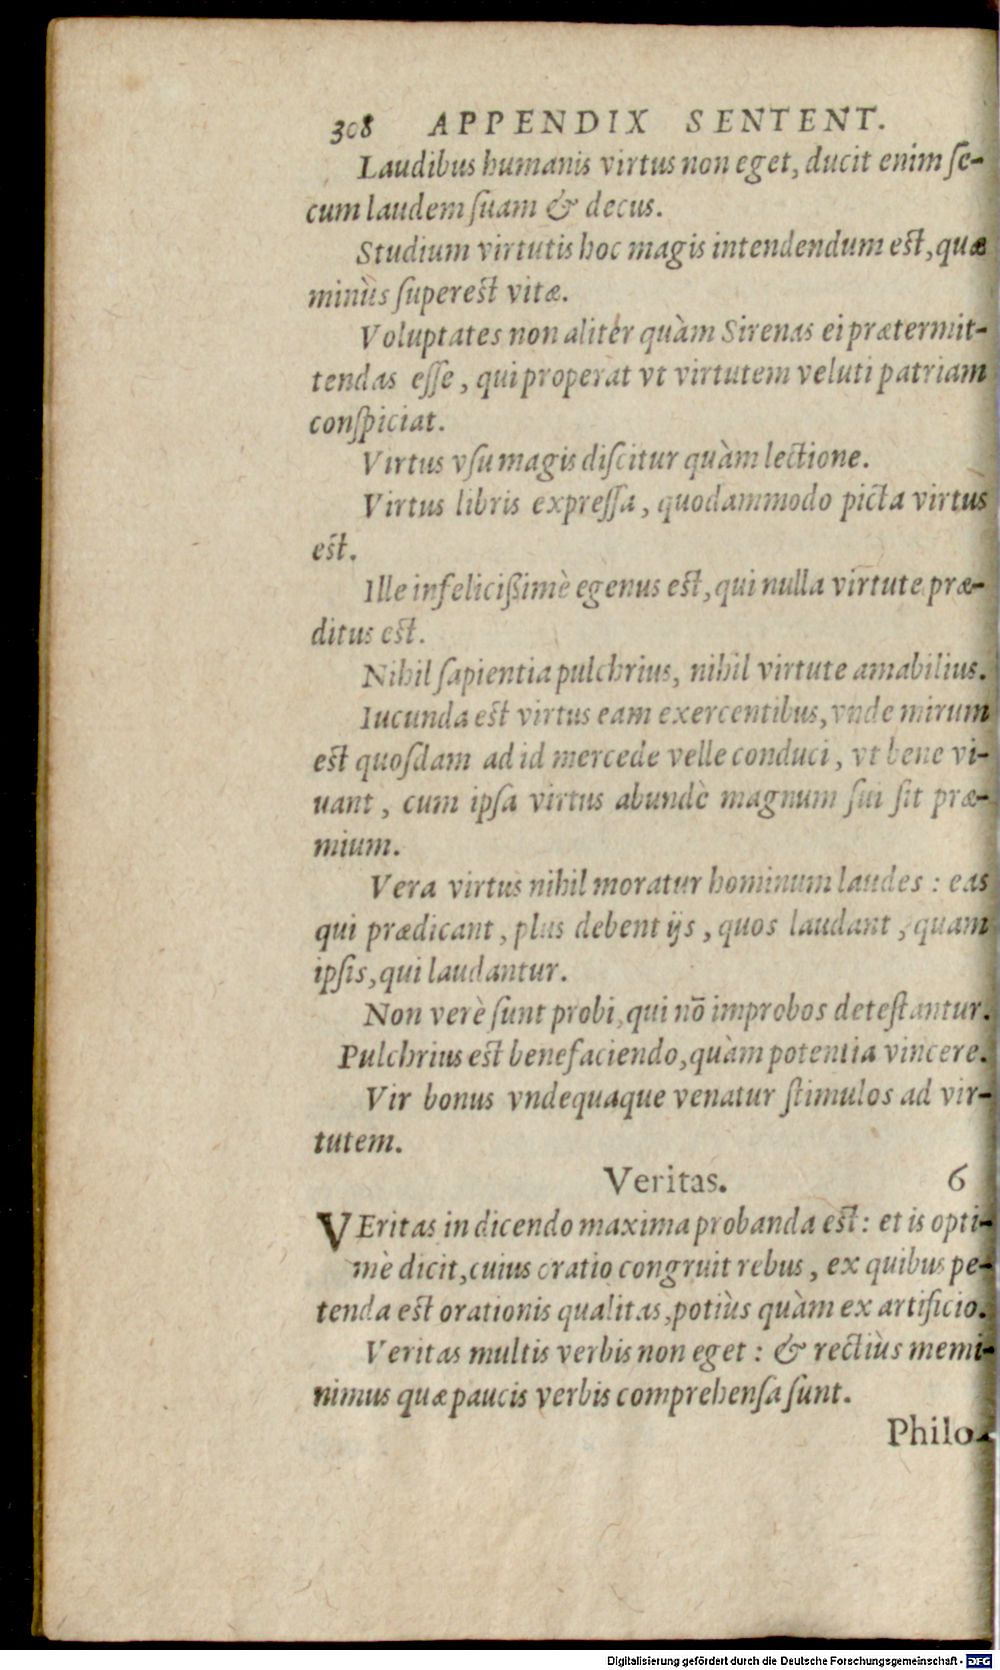 308 APPENDIX SENTENT.
Laudibus humanis virtus non eget, ducit enim ſe-
cum laudem ſuam & decus.
Studium virtutis hoc magis intendendum est, quæ
minùs ſuperest vitæ.
Voluptates non alitér quàm Sirenas ei prætermit-
tendas eſſe, qui properat vt virtutem veluti patriam
conſpiciat.
Virtus vſu magis diſcitur quàm lectione.
Virtus libris expreſſa, quodammodo picta virtus
est.
Ille infelicißimè egenus est, qui nulla virtute præ-
ditus est.
Nihil ſapientia pulchrius, nihil virtute amabilius.
Iucunda est virtus eam exercentibus, vnde mirum
est quoſdam ad id mercede velle conduci, vt bene vi-
uant, cum ipſa virtus abundè magnum ſui ſit præ-
mium.
Vera virtus nihil moratur hominum laudes: eas
qui prædicant, plus debent ijs, quos laudant, quam
ipſis, qui laudantur.
Non verè ſunt probi, qui nō improbos deteſtantur.
Pulchrius est benefaciendo, quàm potentia vincere.
Vir bonus vndequaque venatur ſtimulos ad vir-
tutem.
Veritas. 6
VEritas in dicendo maxima probanda est: et is opti-
mè dicit, cuius oratio congruit rebus, ex quibus pe-
tenda est orationis qualitas, potiùs quàm ex artificio.
Veritas multis verbis non eget: & rectiùs memi-
nimus quæ paucis verbis comprehenſa ſunt.
Philo-
Digitalisierung gefördert durch die Deutsche Forschungsgemeinschaft - DFG